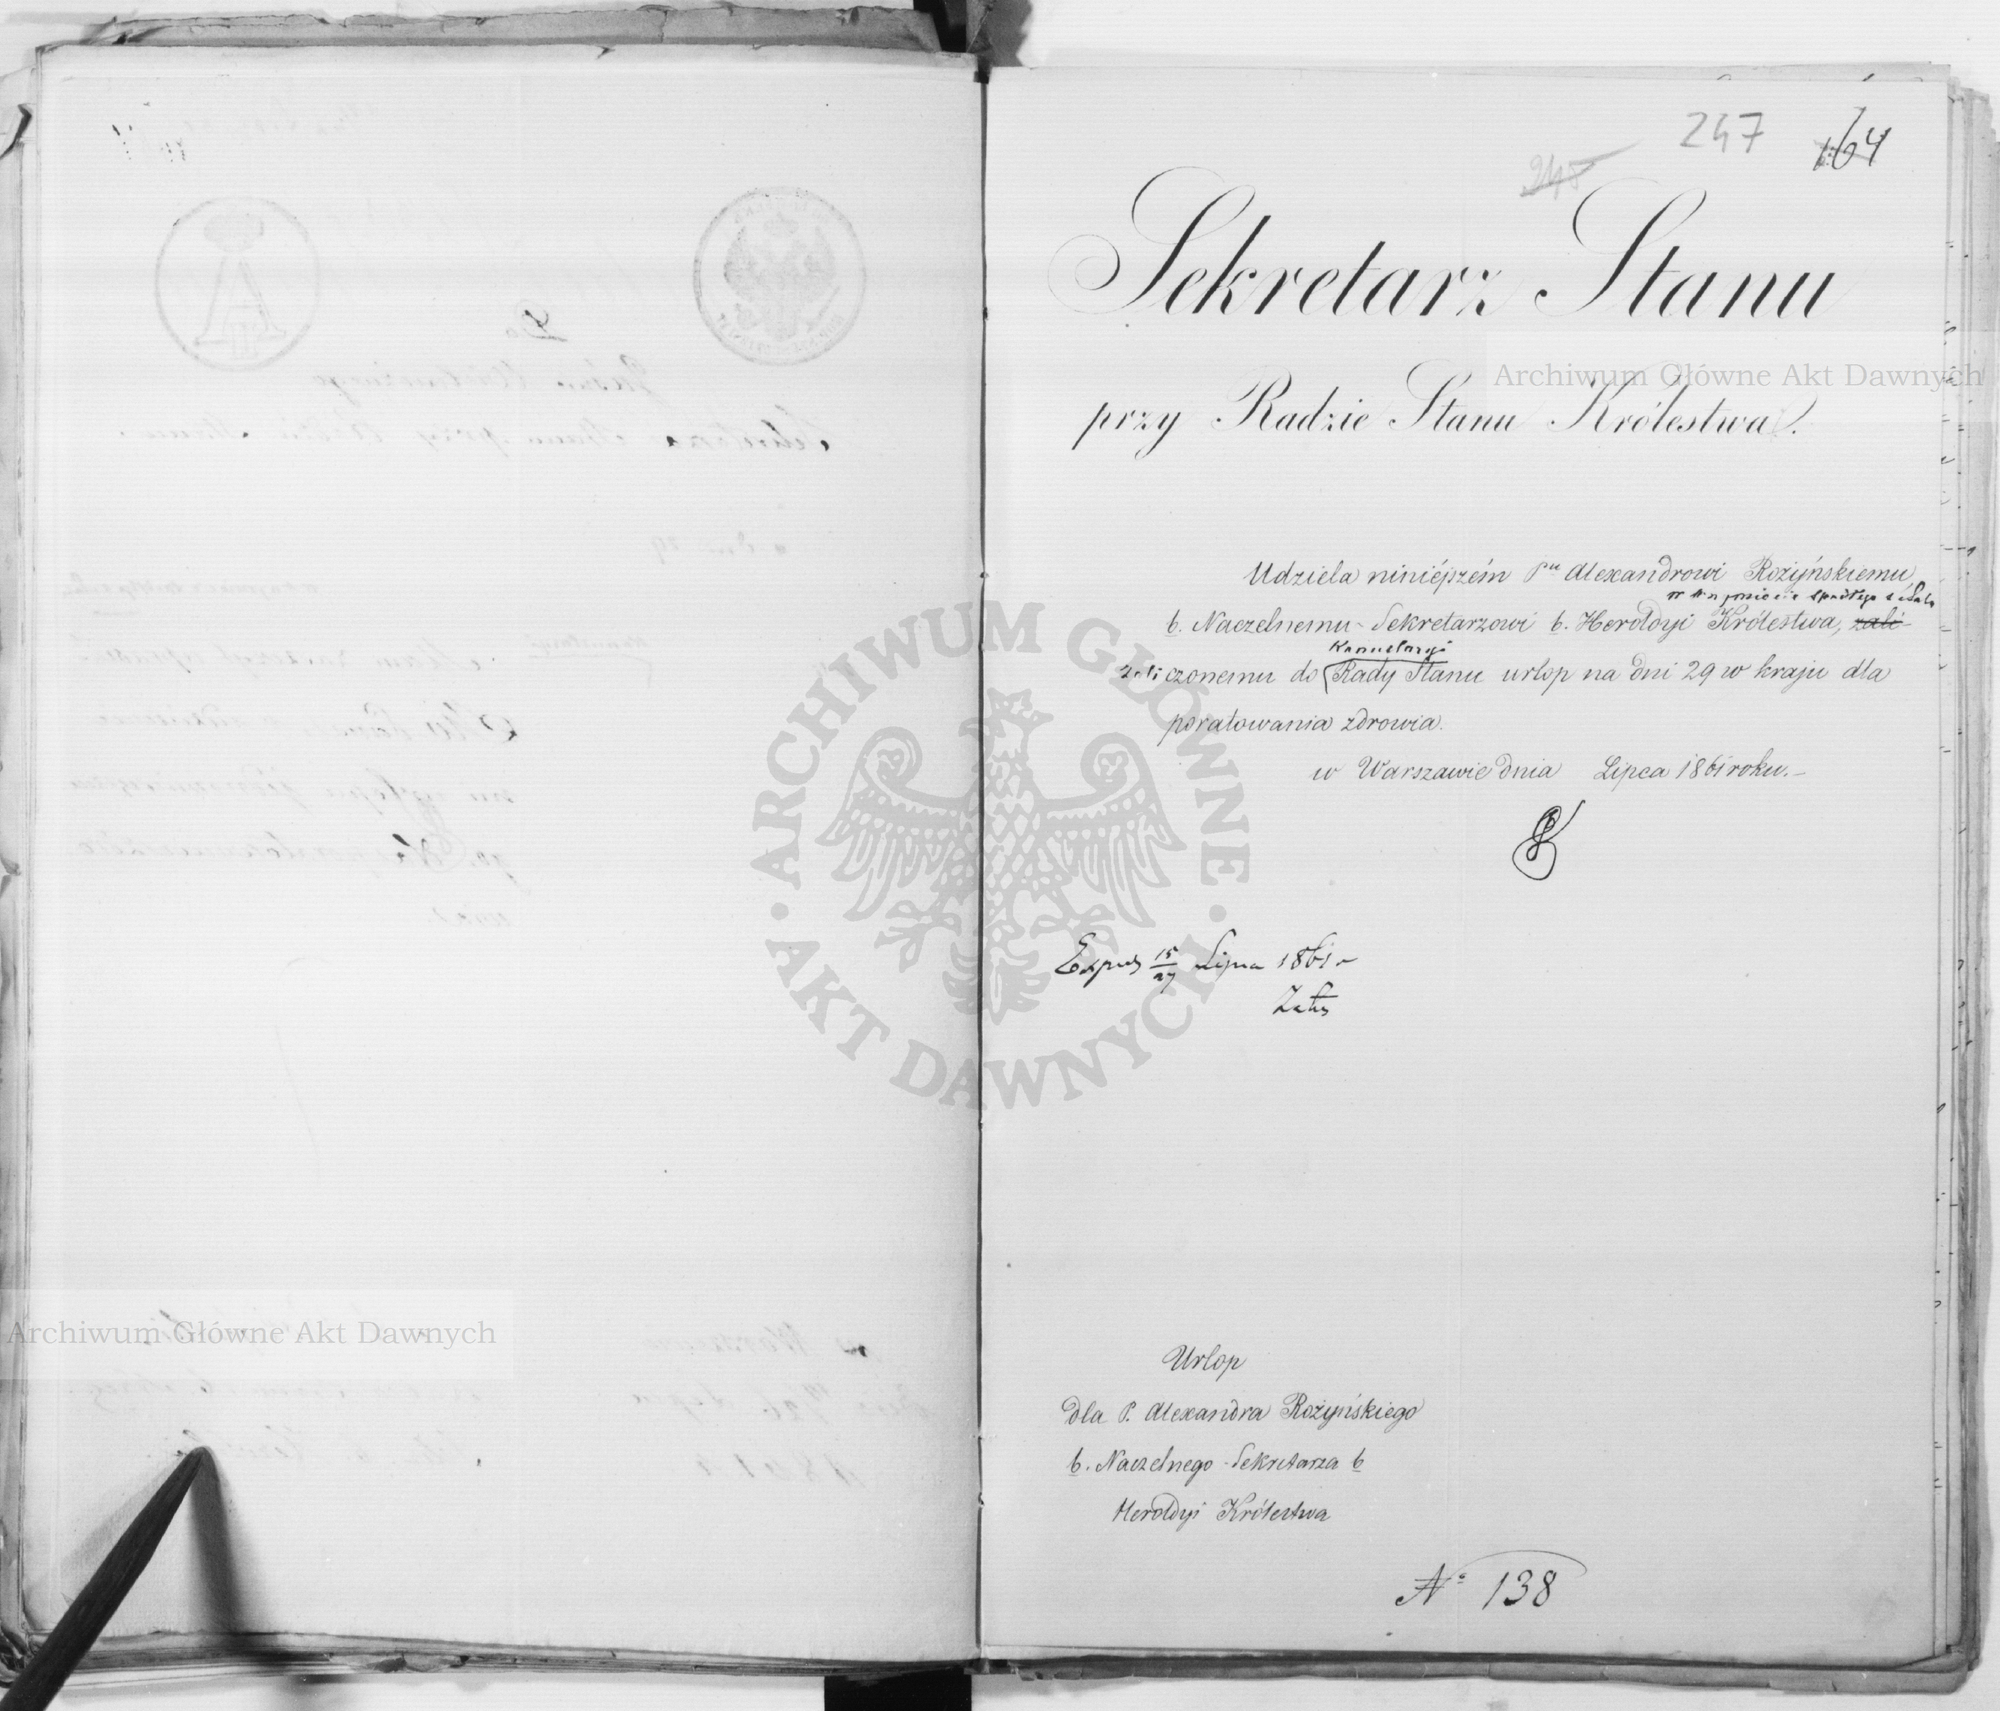 247 164
248
Sekretarz Stanu
przy Radzie Stanu Królestwa.
Udziela niniéjszém Pu Alexandrowi Rożyńskiemu,
b. Naczelnemu Sekretarzowi b. Heroldyi Królestwa, zali-
Kancelaryi
zaliczonemu do Rady Stanu urlop na dni 29 w kraju dla
poratowania zdrowia.
w Warszawie dnia Lipca 1861 roku.-
15/27 Lipca 1861 r
Urlop
dla P. Alexandra Rożyńskiego
b. Naczelnego Sekretarza b
Heroldyi Królestwa
No 138
Archiwum Główne Akt Dawnych
Archiwum Główne Akt Dawnych
ARCHIWUM GŁÓWNE AKT DAWNYCH